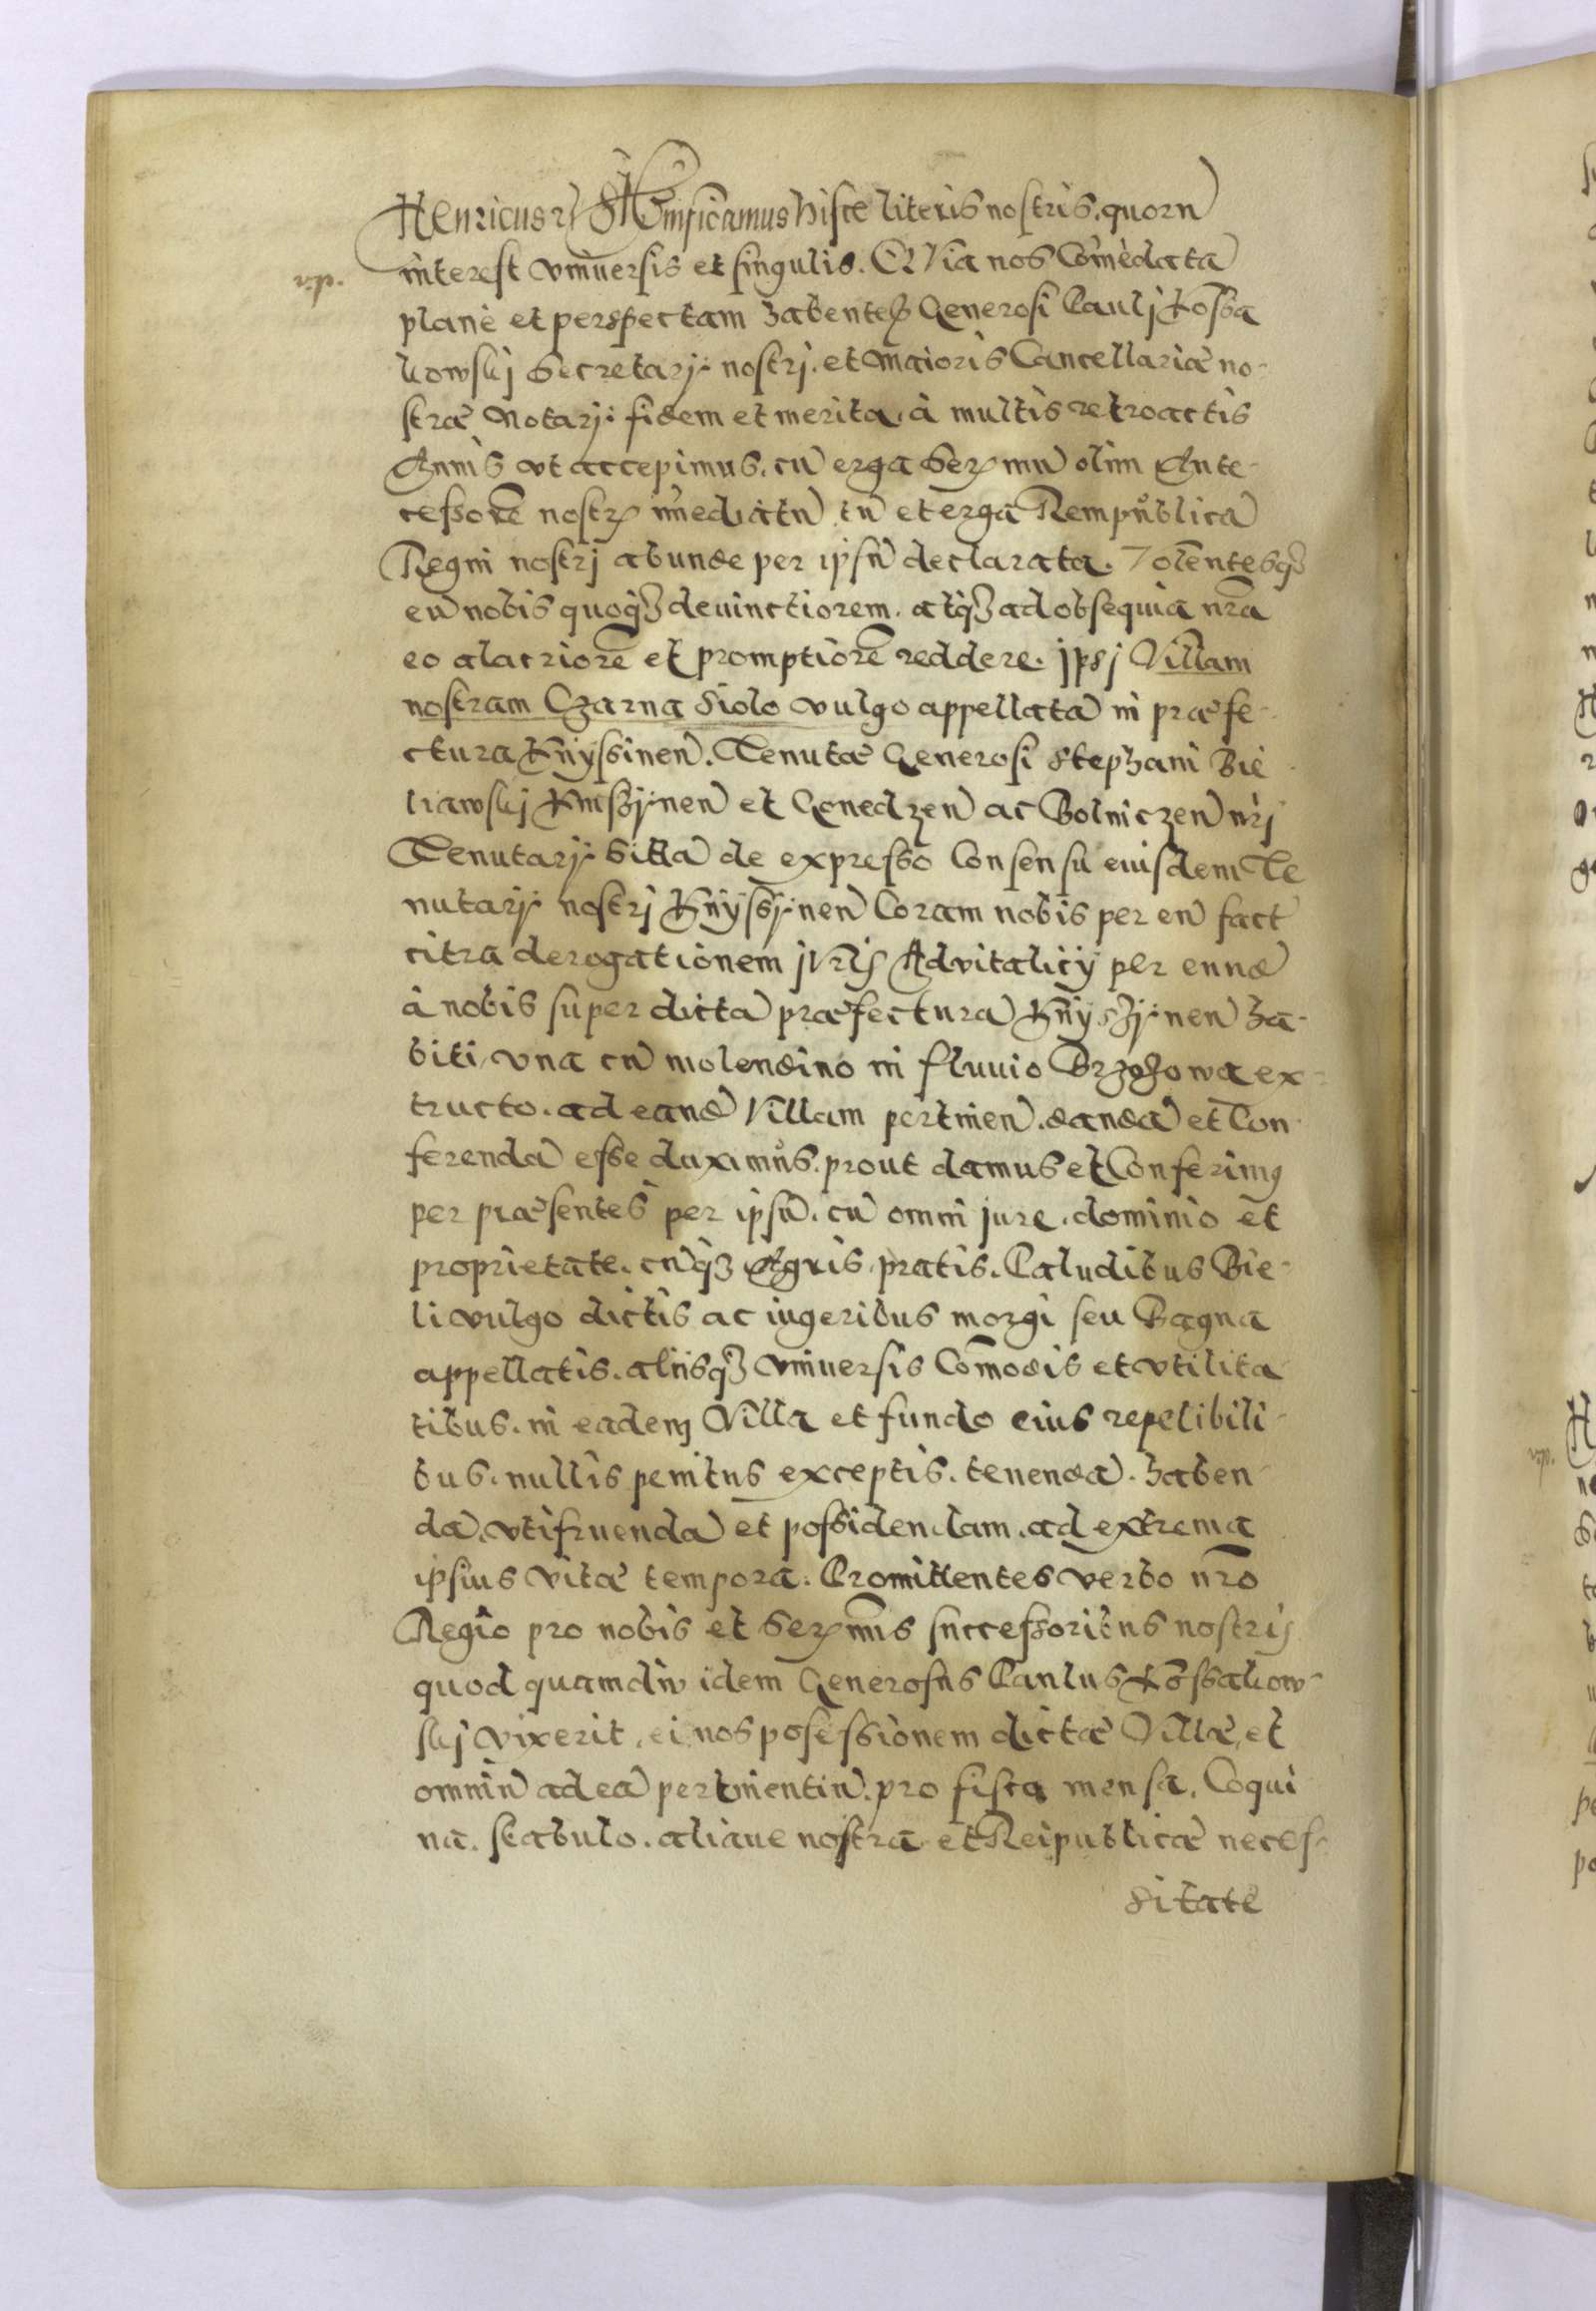 Henricus etc. Significamus hisce literis nostris. quorū
interest vniuersis et singulis. Quia nos Cōmēdatā
planè et perspectam habentes Generosi Paulj Kossa
kowskj Secretarij nostrj. et maioris Cancellariæ no-
stræ Notarij fidem et merita, à multis retroactis
Annis vt accepimus. cū erga Serenmū olim Ante-
cessorē nostrum īmediatū tū et erga Rempublicā
Regni nostrj abunde per ipsū declarata. Volentesq3
eū nobis quoq3 deuinctiorem. atq3 ad obsequia nr̄a
eo alacriorē et promptiorē reddere. jpsj Villam
nostram Czarna Siolo vulgo appellatā in præfe-
ctura Knÿssinen. Tenutæ Generosi Stephani Bie
liawskj Kniszÿnen et Gonedzen ac Wolniczen nrj
Tenutarij Sittā de expresso Consensu eiusdem Te
nutarij nostrj Knÿssÿnen Coram nobis per eū fact
citra derogationem jVris Advitalicÿ per eundē
à nobis super dictā præfecturā Knÿszÿnen ha-
biti, vna cū molendino in fluuio Brzozowa ex-
tructo. ad eandē Villam pertinen. dandā et Con-
ferendā esse duximus. prout damus et Conferimus
per præsentes per ipsū. cū omni jure. dominio et
proprietate. cūq3 Agris, pratis. Paludibus Bie-
li vulgo dictis ac iugeribus morgi seu Bagna
appellatis. alijsq3 vniuersis Cōmodis et vtilita-
tibus. in eadem Villa et fundo eius repetibili-
bus. nullis penitus exceptis. tenendā. haben-
dā. vtifruendā et possidendam. ad extrema
ipsius vitæ tempora. Promittentes verbo nr̄o
Regio pro nobis et Serenmis successoribus nostris
quod quamdiu idem Generosus Paulus Kossakow-
skj vixerit, ei nos posessionem dictæ Villæ, et
omniū ad eā pertinentiū. pro fisco mensa. Coqui
na. stabulo. aliaue nostra et Reipublicæ neces-
sitate